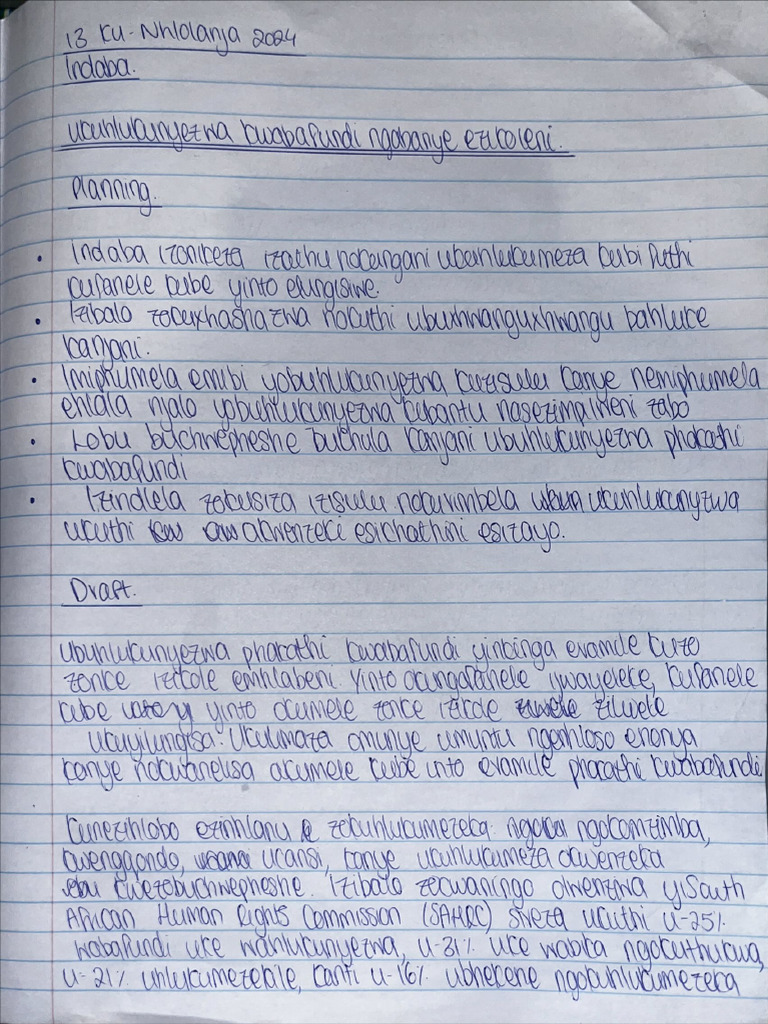 13 Ku-Nhlolanja 2024
Indaba.
Ukuhlukunyezwa kwabafundi ngabanye ezikoleni.
Planning.
• Indaba izoniketa izathu nokungani ukuhlukumeza kubi futhi
kufanele kube yinto elungisiwe.
• Izibalo zokuxhashazwa nokuthi ubuxhwanguxhwangu bahluke
kanjani.
• Imiphumela emibi yobuhlukunyezwa kuzisulu kanye nemiphumela
ehlala njalo yobuhlukunyezwa kubantu nasezimpilweni zabo
• Lobu buchwepheshe buthula kanjani ubuhlukunyezwa phakathi
kwabafundi
• Izindlela zokusiza izisulu nokuvimbela ukuhlukunyzwa
ukuthi akwenzeki esichathini esizayo.
Draft.
Ubuhlukunyezwa phakathi kwabafundi yinkinga evamile kuzo
zonke izikole emhlabeni yinto okungafanele iwayeleke, kufanele
kube yinto okumele zonke izikole zilwele
ukuyilungisa. Ukulimaza omunye umuntu ngenhloso enonya
kanye nokwanelisa akumele kube into evamile phakathi kwabafundi
Kunezinhlobo ezinhlanu zokuhlukumezeka: ngokomzimba,
kwengqondo, ucansi, kanye ukuhlukumeza okwenzeka
kwezobuchwepheshe. Izibalo zocwaningo olwenziwa yiSouth
African Human Rights Commission (SAHRC) siveza ukuthi u-25%
wabafundi uke wahlukunyezwa, u-31% uke wabika ngokuthukwa,
u-21% uhlukumezekile, kanti u-16% ubhekene ngokuhlukumezeka